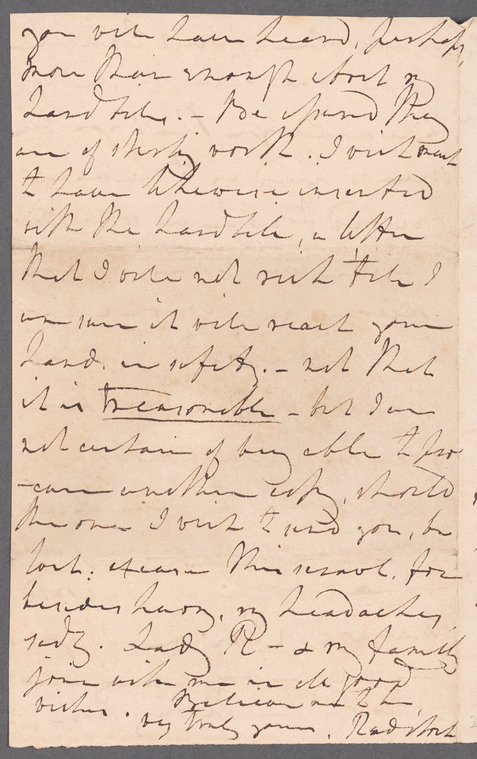 you will have heard, perhaps,
more than enough about my
handbills. - Be assured they
are of sterling worth. I wish
to have likewise inserted
with the handbill, a letter
that I will not risk till I
am sure it will reach your
hands in safety. - not that
it is treasonable - but I am
not certain of being able to pro-
-cure another copy, should
the one I wish to send you, be
lost: excuse this scrawl, for
besides hurry, my head aches
sadly. Lady R - & my family
join with me in all good
wishes. Believe me to be,
very truly yours, Radstock